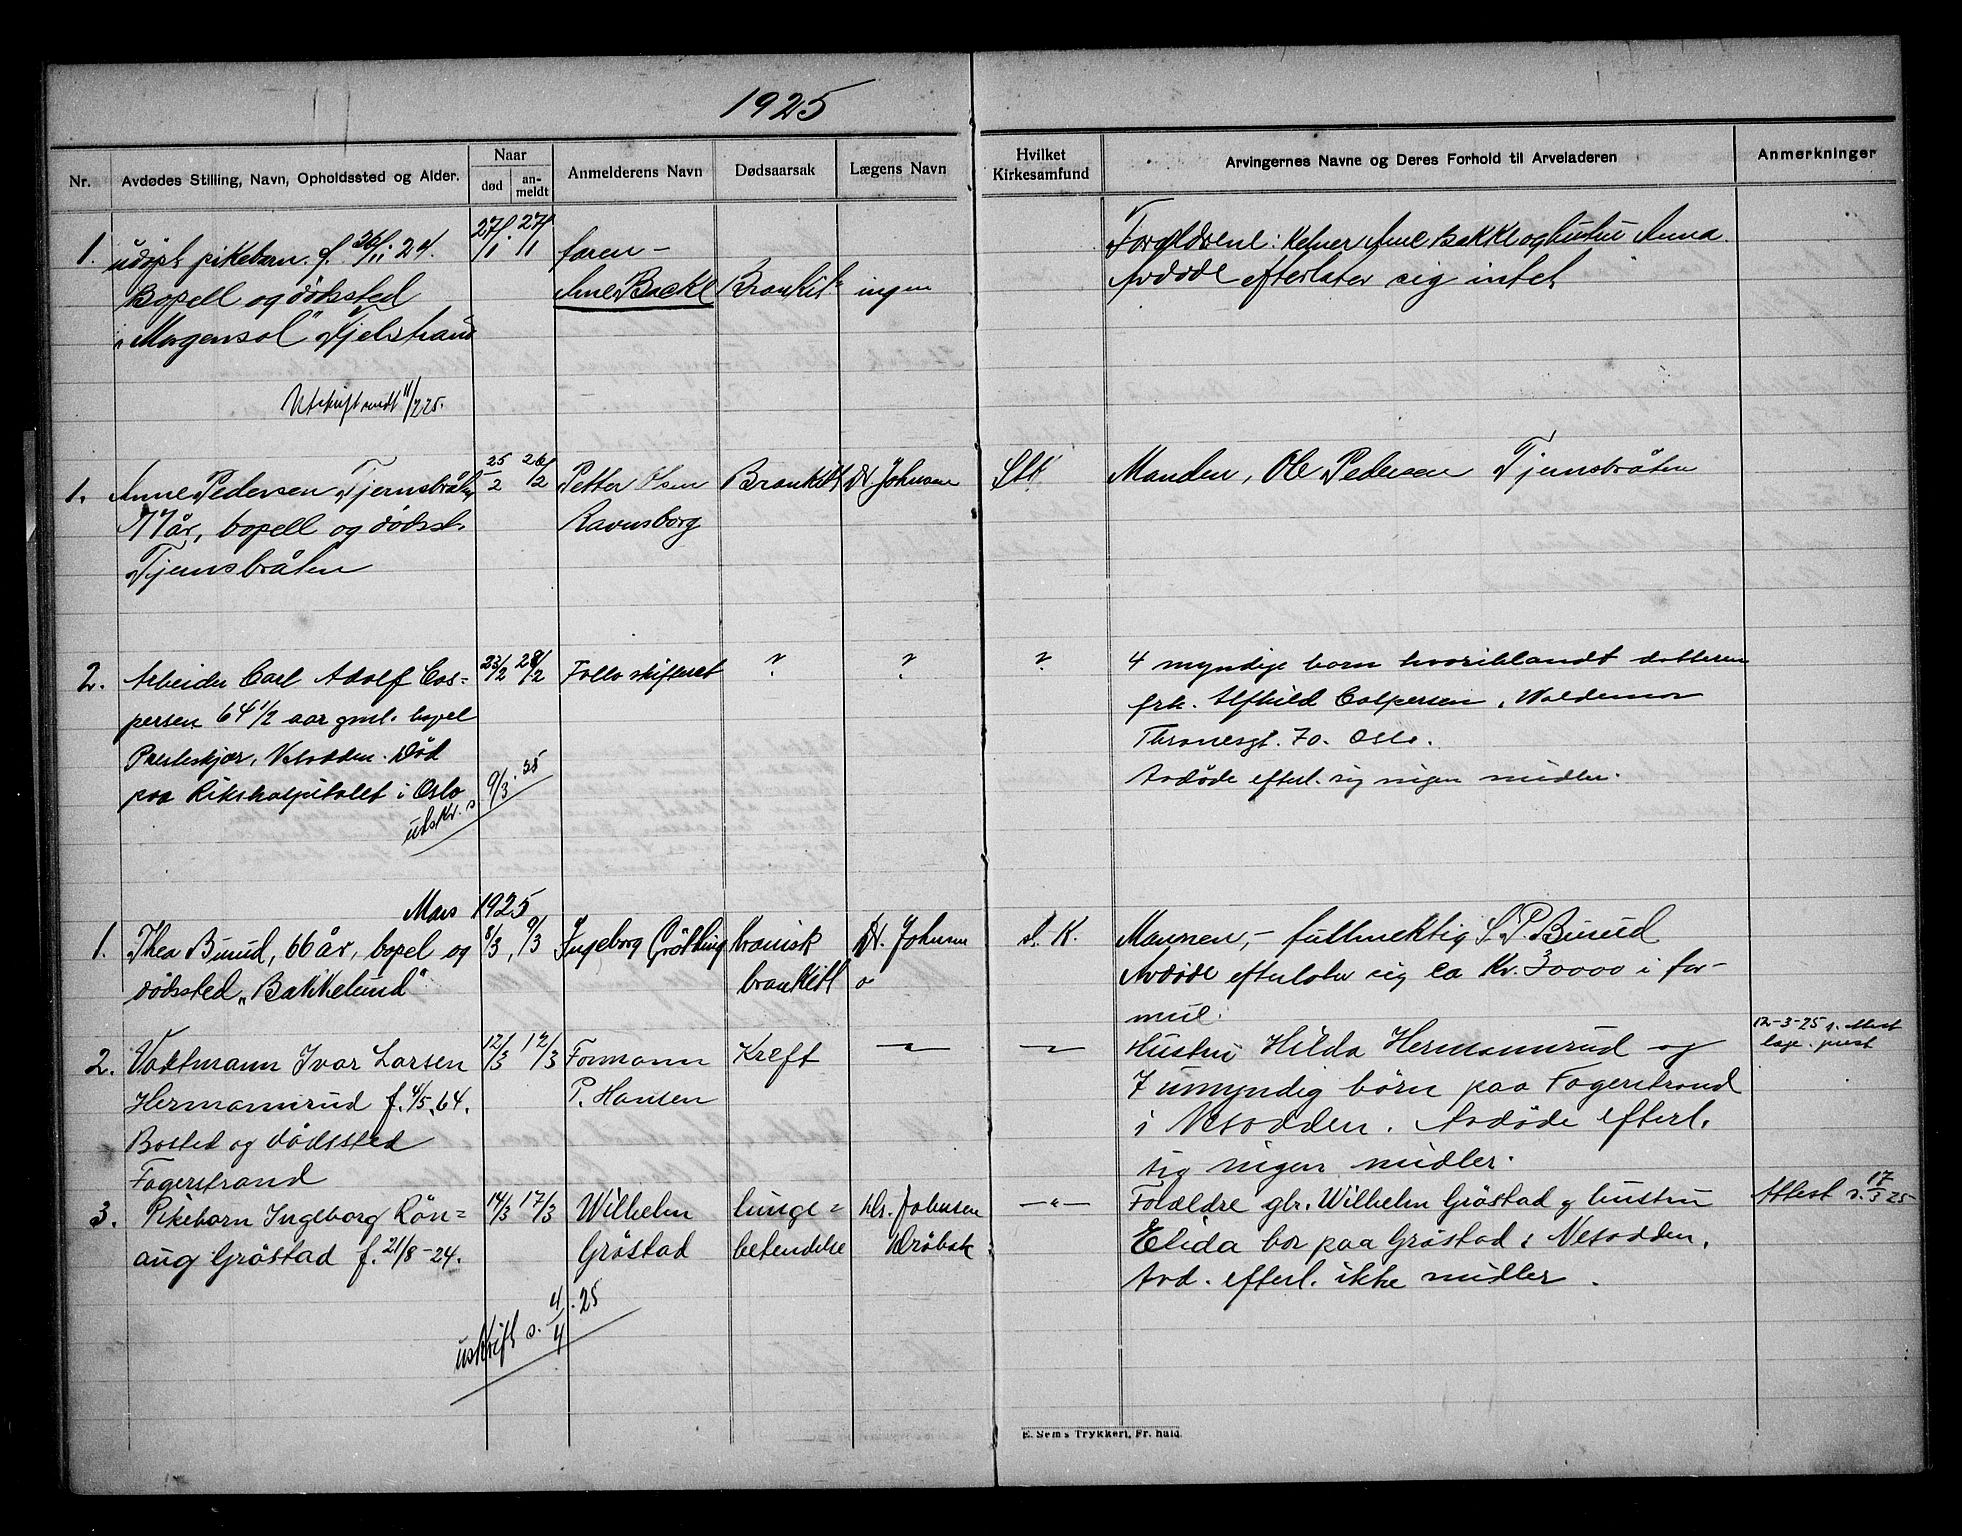 1925
Nr.
Avdødes Stilling, Navn, Opholdssted og Alder.
Naar
død
an-
meldt
Anmelderens Navn
Dødsaarsak
Lægens Navn
Hvilket
Kirkesamfund
Arvingernes Navne og Deres Forhold til Arveladeren
Anmerkninger
1. udøpt pikebarn. f. 26/11 24. 27/1 27/1 faren - Forældrene: Kelner Arne Bakke og hustru Anna.
Bopell og dødssted Arne Bakke Bronkit ingen Avdøde efterlater sig intet
"Morgensol" Fjelstrand
Utskrift sendt 11/2 25.
1. Anne Pedersen Tjernsbråten 25/2 26/2 Petter Olsen Bronkitt Dr. Johnsen Stk Manden, Ole Pedersen Tjernsbråten
77 år, bopell og dødsst. Ravnsborg
Tjernsbråten
2. Arbeider Carl Adolf Cas= 23/2 28/2 Follo skifteret ? ? ? 4 myndige barn hvoriblandt datteren
persen 64 1/2 aar gml. bopel frk. Alfhild Caspersen, Waldemar
Presteskjær, Nesodden. Død Thranesgt. 70. Oslo.
paa Rikshospitalet i Oslo Avdøde efterl. sig ingen midler.
utskr. s 9/3. 25
Mars 1925
1. Thea Buud, 66 år, bopel og 8/3, 9/3 Ingeborg Grøtling kronisk Dr. Johnsen s. K. Mannen, - fullmektig S. P. Buud
dødssted „Bakkelund" bronkitt Avdøde efterlater sig ca Kr. 30000 i for-
mue.
2. Vaktmann Ivar Larsen 12/3 12/3 Formann Kreft —"— —"— Hustru Hilda Hermannrud og 12-3-25 s. attest
Hermannrud f. 4/5.64. P. Hansen 7 umyndig børn paa Fagerstrand
Bosted og dødssted i Nesodden. Avdøde efterl.
Fagerstrand sig ingen midler.
3. Pikebarn Ingeborg Rön= 14/3 17/3 Wilhelm lunge= Dr. Johnsen —"— Forældre gbr. Wilhelm Gröstad og hustru Attest s. 17/3 25
aug Gröstad f. 21/8-24. Gröstad betendelse Dröbak Elida bor paa Gröstad i Nesodden.
Avd. efterl. ikke midler.
utskrift s. 4/4. 25
E. Sem's Trykkeri, Fr. hald.